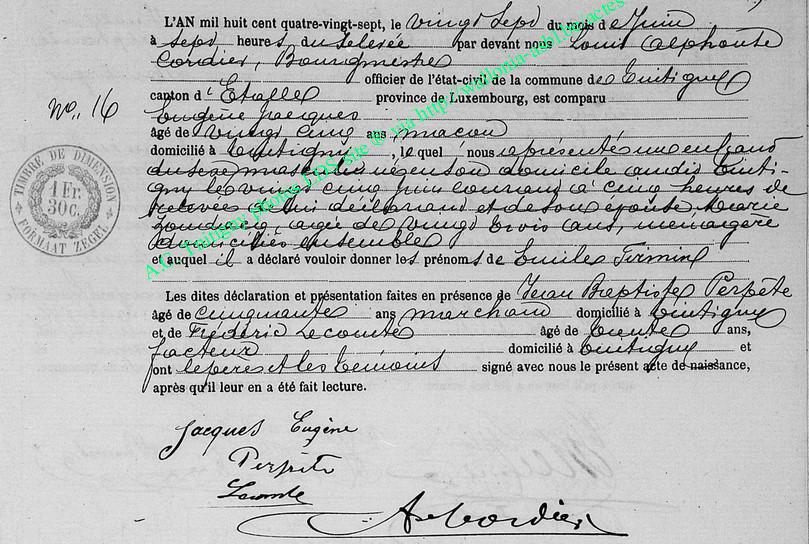 L'AN mil huit cent quatre-vingt-sept, le vingt Sept du mois de Juin
à Sept heures du relevée par devant nous Louis Alphonse
Cordier, Bourgmestre
officier de l'état-civil de la commune de Tintigny
canton d' Etalle province de Luxembourg, est comparu
No. 16
Eugène Jacques
âgé de vingt cinq ans maçon
domicilié à Tintigny, lequel nous a présenté un enfant
du sexe masculin né en son domicile audit Tinti-
gny le vingt cinq Juin courant à cinq heures de
relevée à lui déclarant et de son épouse, Marie
âgée de vingt trois ans, ménagère
domiciliés ensemble
et auquel il a déclaré vouloir donner les prénoms de Emile Firmin
Les dites déclaration et présentation faites en présence de Jean Baptiste Perpète
âgé de cinquante ans marchand domicilié à Tintigny
et de Frédéric Lecomte âgé de trente ans,
facteur domicilié à Tintigny et
ont le père et les témoins signé avec nous le présent acte de naissance,
après qu'il leur en a été fait lecture.
TIMBRE DE DIMENSION
1 Fr.
30 c.
FORMAAT ZEGEL
Jacques Eugène
Perpète
Lecomte
A Cordier
A.G. Tintigny photos EDS, site @ via http://wallonia-asbl.be/actes